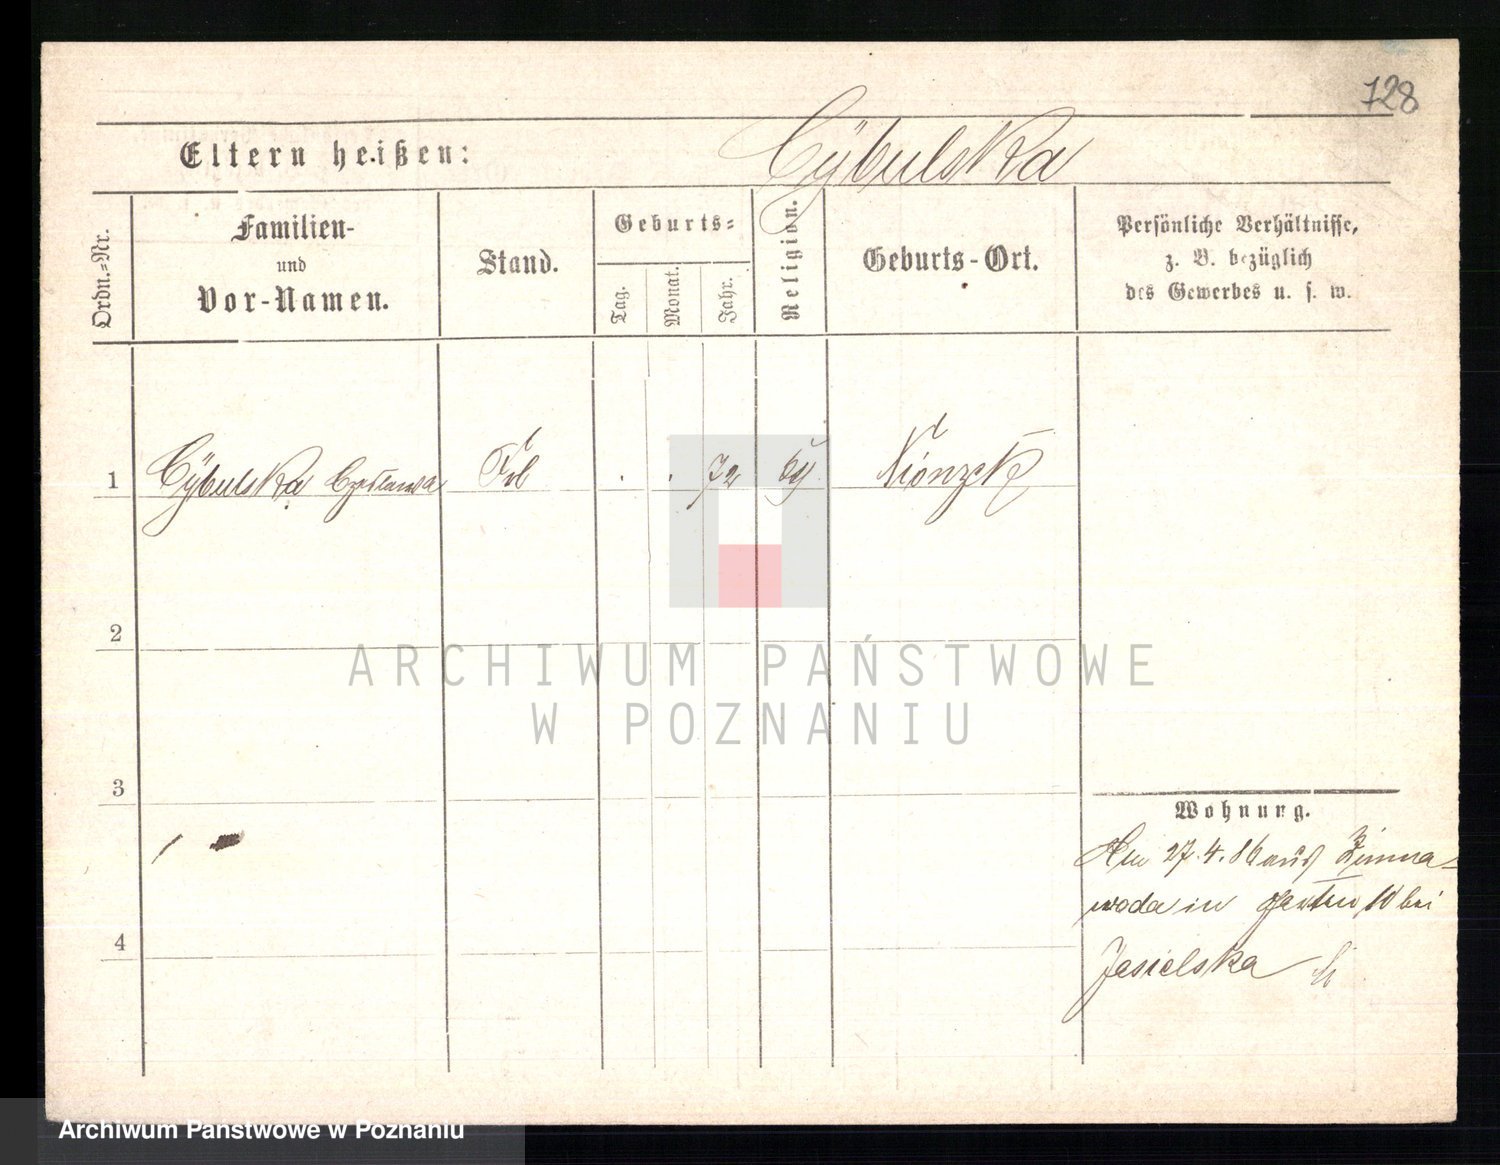 728
Eltern heißen:
Cybulska
Ordn.-Nr.
Familien-
und
Vor-Namen.
Stand.
Geburts-
Tag.
Monat.
Jahr.
Religion.
Geburts-Ort.
Persönliche Verhältnisse,
z. B. bezüglich
des Gewerbes u. s. w.
1 Cybulska Czesława 72
2
3
4
Wohnung.
Am 27.4.86 aus Zimna-
woda in Garten 10 bei
Jasielska
ARCHIWUM PAŃSTWOWE
W POZNANIU
Archiwum Państwowe w Poznaniu